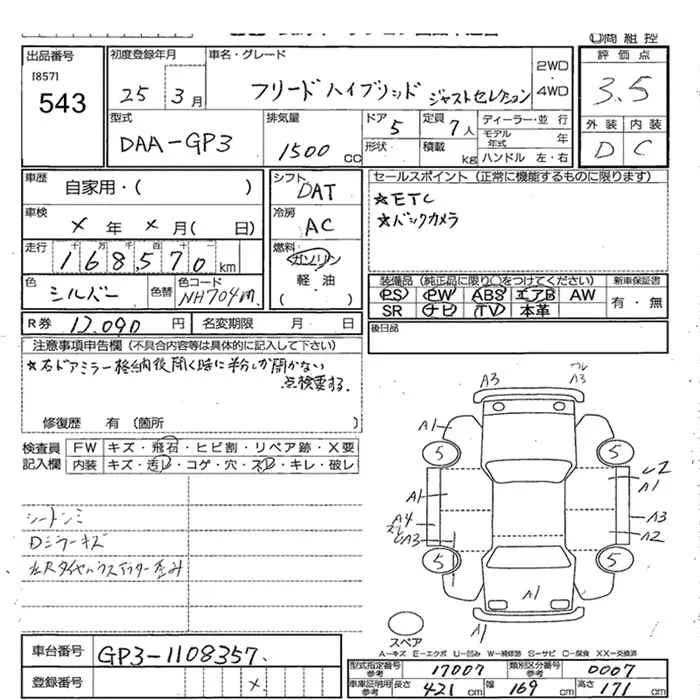 〇商組控
出品番号
[857]
543
初度登録年月
25 3月
車名・グレード
フリードハイブリッド ジャストセレクション
2WD
・
4WD
評価点
3.5
外装 内装
D C
型式
DAA-GP3
排気量
1500 CC
ドア 5
形状
定員 7人
積載 kg
ディーラー・並行
モデル年式 年
ハンドル 左・右
車歴
自家用・( )
車検
× 年 × 月( 日)
走行
十 万 千 百 十
168,570 km
色
シルバー
色替
色コード
NH704M
シフト
DAT
冷房
AC
燃料
ガソリン
軽・油
( )
セールスポイント (正常に機能するものに限ります)
★ETC
★バックカメラ
装備品 (純正品に限り〇をつけてください)
新車保証書
PS PW ABS エアB AW
SR ナビ TV 本革
有・無
R券 12,090 円
名変期限 月 日
後日品
注意事項申告欄 (不具合内容等は具体的に記入して下さい)
★右ドアミラー格納後開く時に半分しか開かない
点検要する。
修復歴 有 (箇所 )
検査員
記入欄
FW キズ・飛石・ヒビ割・リペア跡・X要
内装 キズ・汚レ・コゲ・穴・スレ・キレ・破レ
シートシミ
Dミラーキズ
A3
A3
A1
5
5
A1
A1
A4
A3
A3
A2
5
5
A1
A1
スペア
A-キズ E-エクボ U-凹み W-補修跡 S-サビ C-腐食 XX-交換済
車台番号
GP3-1108357
登録番号
×
型式指定番号
参考
17007
類別区分番号
参考
0007
車庫証明用
参考
長さ 421 cm
幅 169 cm
高さ 171 cm